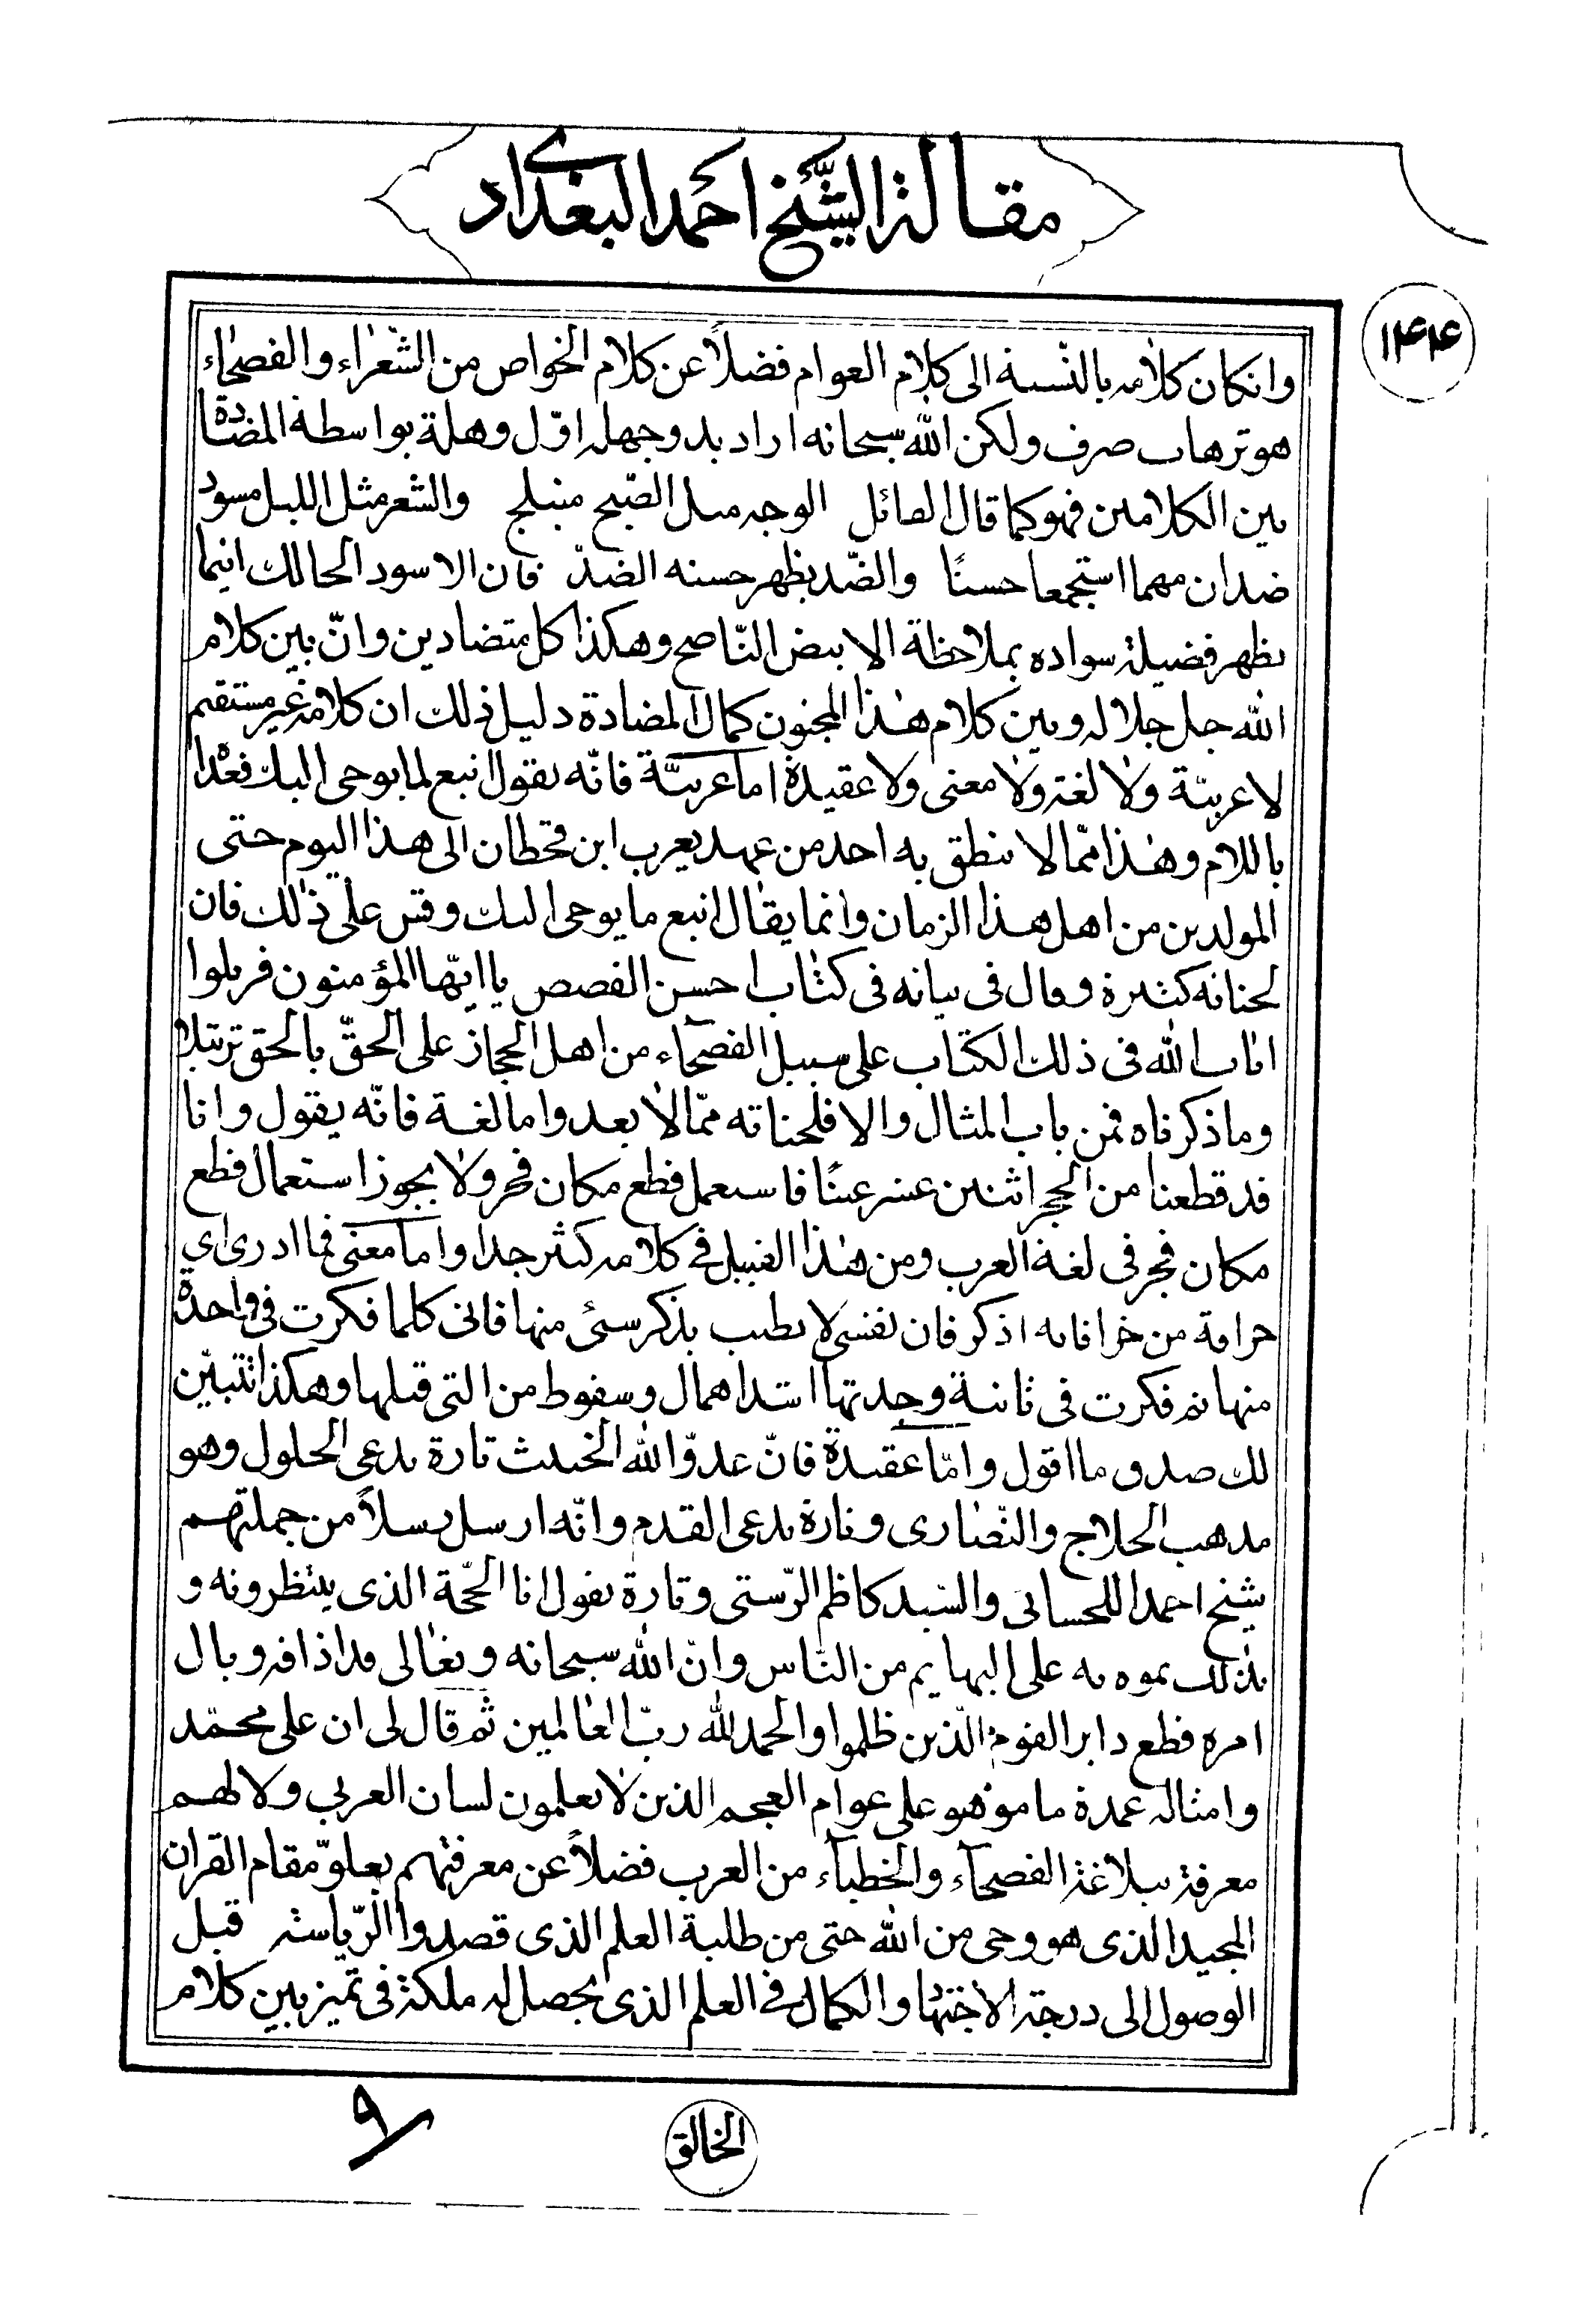 مقالة الشیخ احمد البغدادی
۱۴۴
وانکان کلامه بالنسبة الی کلام العوام فضلاً عن کلام الخواص من الشعراء والفصحاء
هو ترهات صرف ولکن الله سبحانه اراد بدو جهله اوّل وهلة بواسطة المضادة
بین الکلامین فهو کما قال القائل الوجه مثل الصّبح منبلج والشعر مثل اللیل مسود
ضدان مهما استجمعا حسنًا والضّد یظهر حسنه الضدّ فان الاسود الحالک انیما
یظهر فضیلة سواده بملاحظة الابیض النّاصح وهکذا کل متضادین وانّ بین کلام
الله جل جلاله وبین کلام هذا المجنون کمال المضادة دلیل ذلک ان کلامه غیر مستقیم
لا عربیّة ولا لغة ولا معنی ولا عقیدة اما عربیّة فانّه یقول اتبع لما یوحی الیک فعدا
باللام وهذا ممّا لا ینطق به احد من عهد یعرب ابن قحطان الی هذا الیوم حتی
المولدین من اهل هذا الزمان وانما یقال اتبع ما یوحی الیک وقس علی ذلک فان
لحناته کثیرة وقال فی بیانه فی کتاب احسن القصص یا ایّها المؤمنون فرتلوا
ایات الله فی ذلک الکتاب علی سبیل الفصحآء من اهل الحجاز علی الحقّ بالحق ترتیلا
وما ذکرناه فمن باب المثال والا فلحناته ممّا لا یعد واما لغة فانّه یقول وانا
قد قطعنا من الحجر اثنتین عشر عینًا فاستعمل قطع مکان فجر ولا یجوز استعمال قطع
مکان فجر فی لغة العرب ومن هذا القبیل فی کلامه کثیر جدا واما معنی فما ادری ای
خرافة من خرافاته اذکر فان نفسی لا یطیب بذکر شئ منها فانی کلما فکرت فی واحدة
منها ثم فکرت فی ثانیة وجدتها اشد اهمال وسقوط من التی قبلها وهکذا تتبیّن
لک صدق ما اقول وامّا عقیدة فانّ عدوّ الله الخبیث تارة یدعی الحلول وهو
مذهب الحلاج والنّصاری وتارة یدعی القدم وانّه ارسل رسلاً من جملتهم
شیخ احمد اللحسائی والسّید کاظم الرّستی وتارة یقول انا الحجّة الذی ینتظرونه و
بذلک یموه به علی البهایم من النّاس وانّ الله سبحانه وتعالی قد اذاقه وبال
امره فقطع دابر القوم الّذین ظلموا والحمد لله ربّ العالمین ثم قال لی ان علی محمّد
وامثاله عمدة ما موهو علی عوام العجم الذین لا یعلمون لسان العربی ولا لهم
معرفة ببلاغة الفصحآء والخطبآء من العرب فضلاً عن معرفتهم بعلوّ مقام القران
المجید الذی هو وحی من الله حتی من طلبة العلم الذی قصدوا الرّیاسة قبل
الوصول الی درجة الاجتهاد والکمال فی العلم الذی یحصل له ملکة فی تمیز بین کلام
الخالق
۹